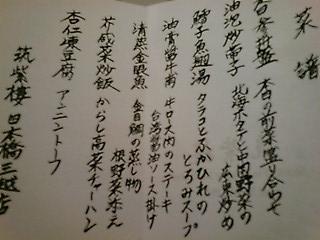 菜譜
本日の前菜盛り合わせ
油泡炒帯子
北海ホタテと中国野菜の
広東炒め
鱈子魚翅湯
タラコとふかひれの
とろみスープ
牛ロース肉のステーキ
台湾醤油ソース掛け
清蒸金眼魚
金目鯛の蒸し物
根野菜添え
芥咸菜炒飯
からし高菜チャーハン
杏仁凍豆腐
アンニントーフ
筑紫樓 日本橋三越店